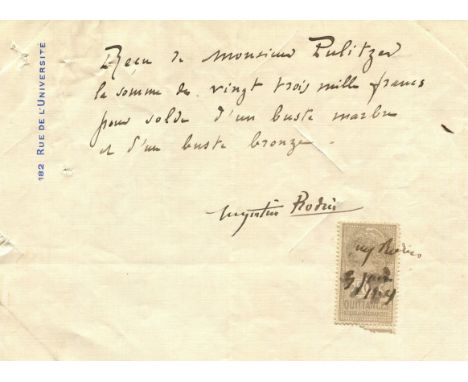 182 RUE DE L'UNIVERSITÉ
Reçu de Monsieur Pulitzer
la somme de vingt trois mille francs
pour solde d'un buste marbre
et d'un buste bronze.
Auguste Rodin
Aug Rodin
QUITTANCES